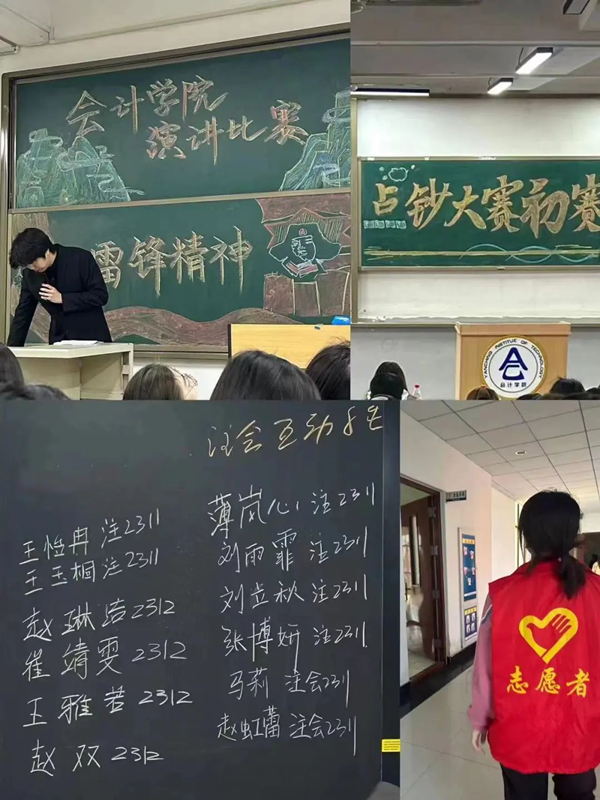 会计学院
演讲比赛
雷锋精神
点钞大赛初赛
YANCHING INSTITUTE OF TECHNOLOGY
会计学院
注会互动
王怡冉 注2311
王玉桐 注2311
赵琳茹 2312
崔靖雯 2312
王雅若 2312
赵双 2312
薄岚心 注2311
刘雨霏 注2311
刘立秋 注2311
张博妍 注2311
马莉 注会2311
赵虹蕾 注会2311
志愿者